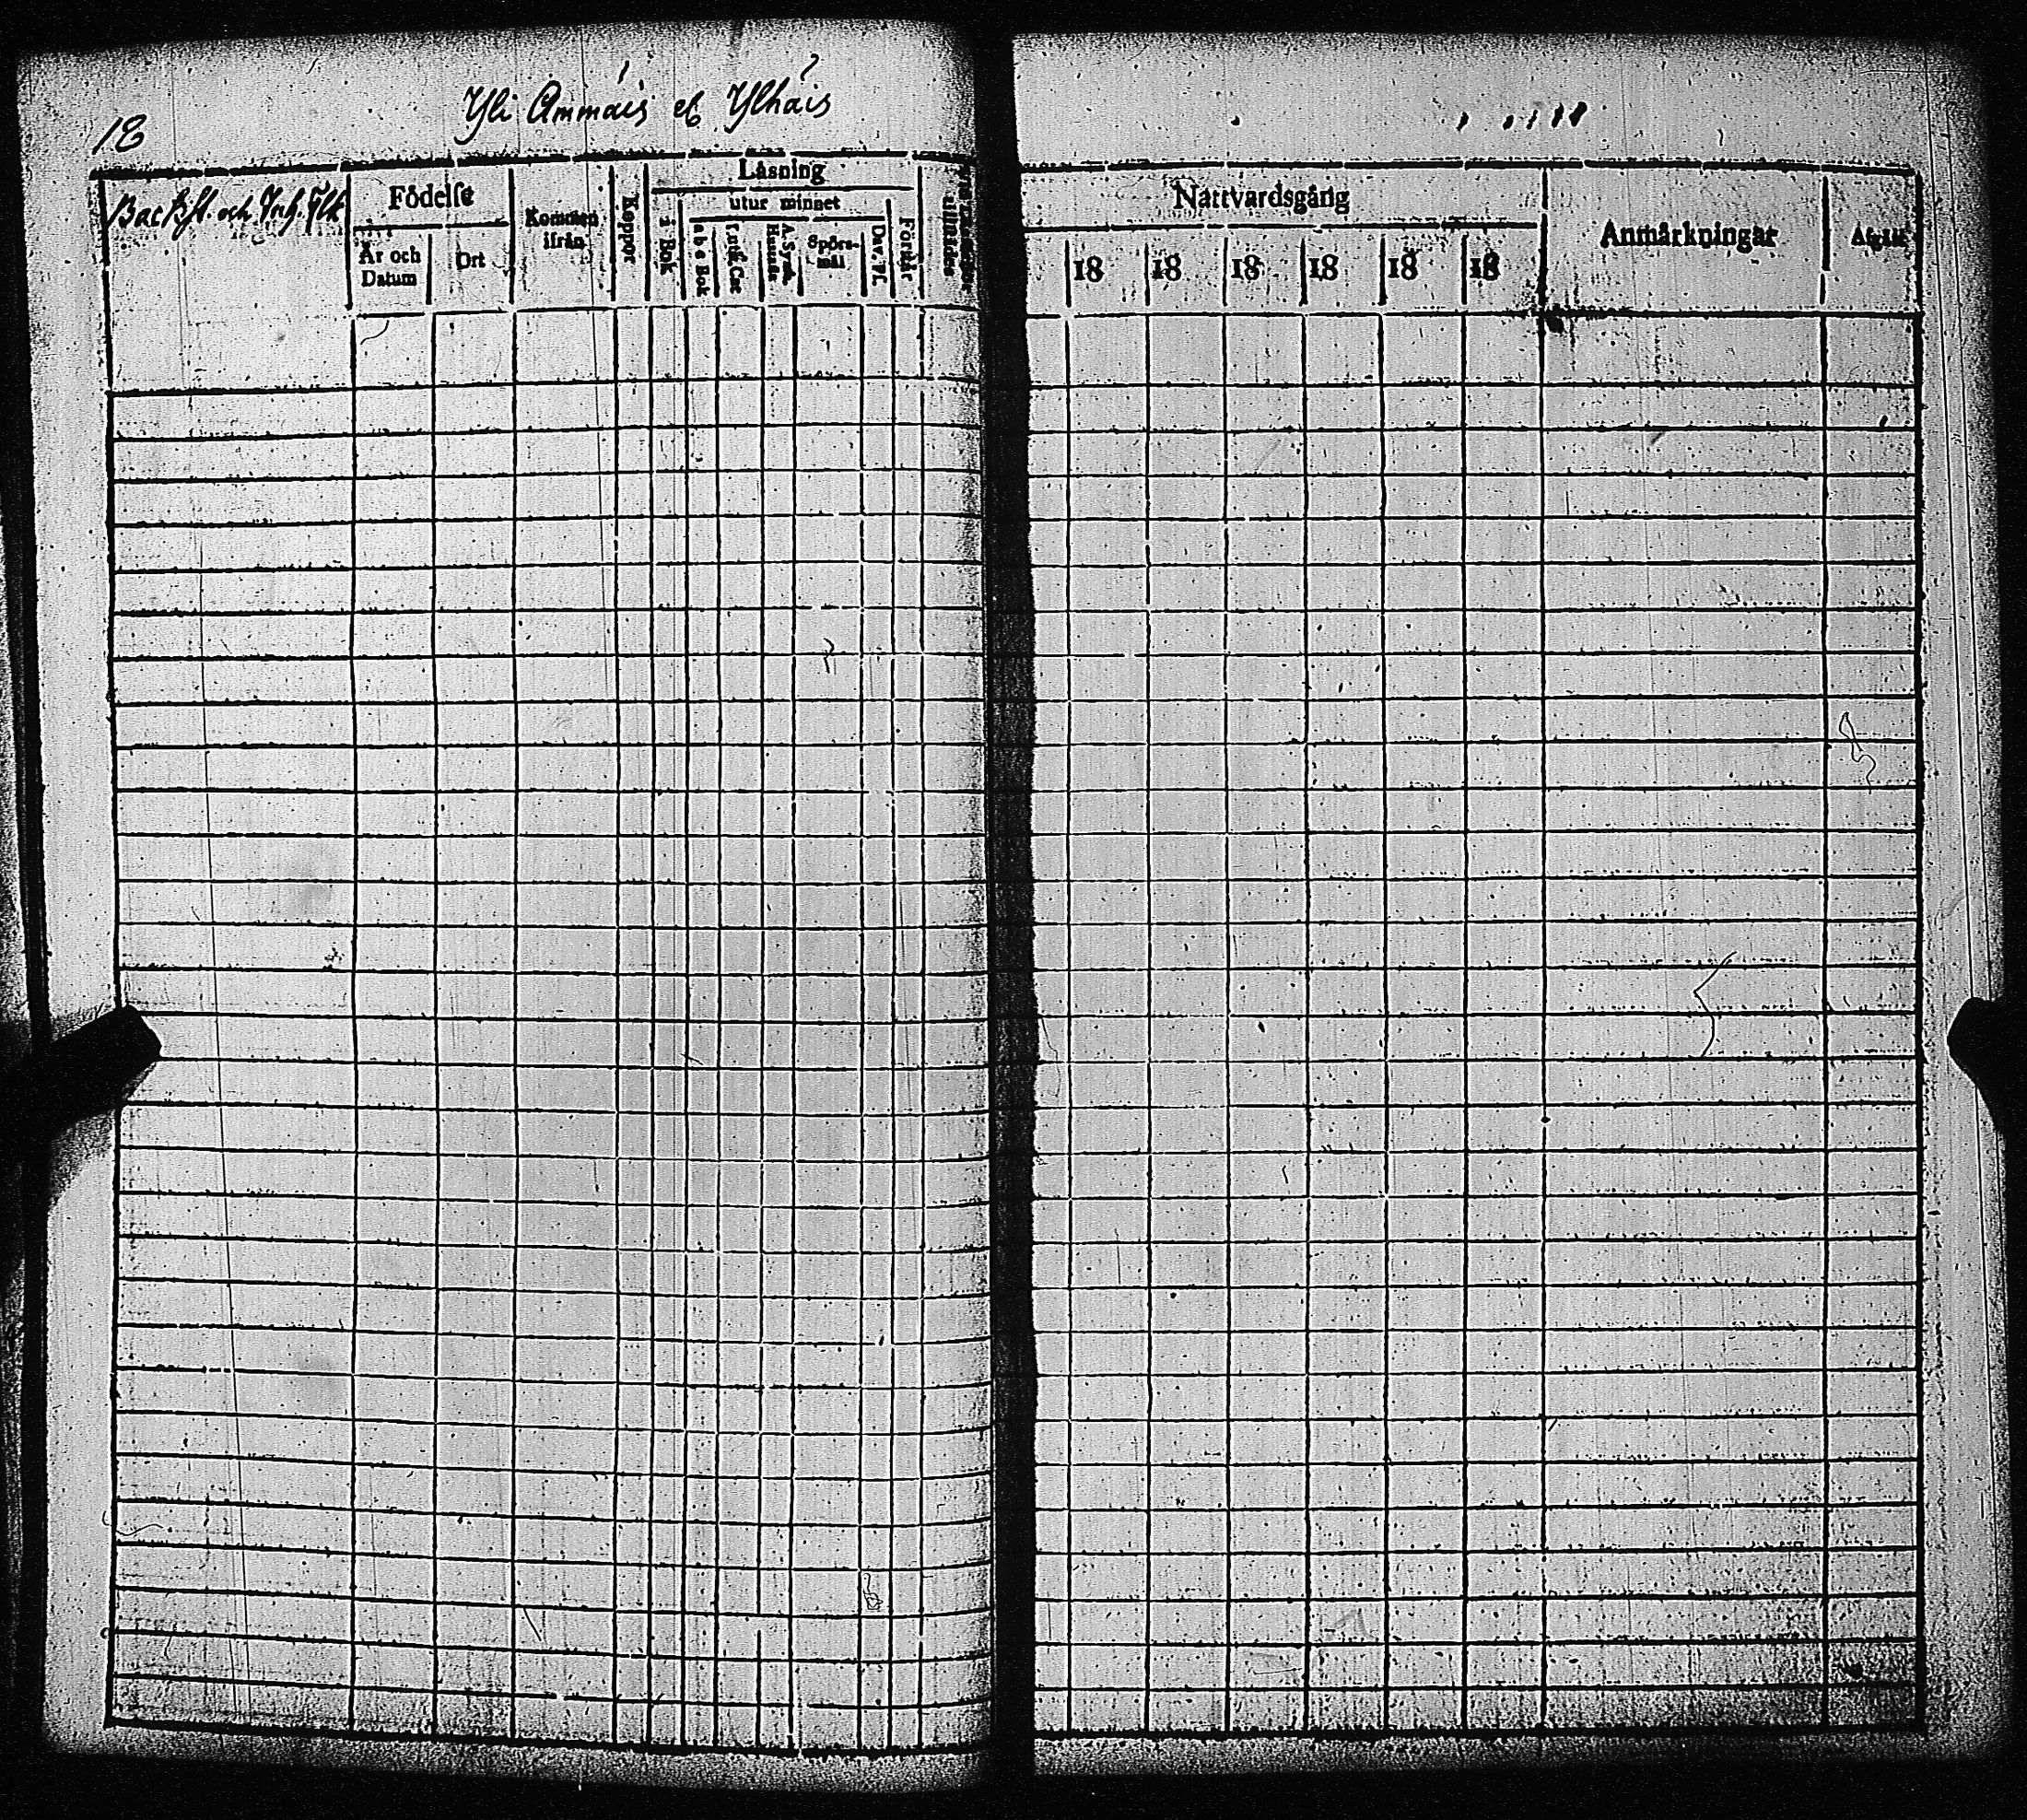 18
Yli Ammäis et Ylhäis
Backst. och Inh. Flk
Födelse
År och Datum
Ort
Kommen ifrån
Koppor
Läsning
i Bok
utur minnet
a b c Bok
Luth. Cat
A. Symb. Hustafl.
Spörsmål
Dav. Ps.
Förstår
Nattvardsgång
18 18 18 18 18 18
Anmärkningar
Afgått